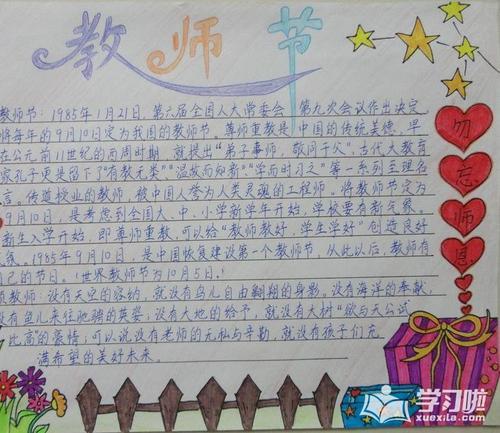 教师节
教师节：1985年1月21日，第六届全国人大常委会 第九次会议作出决定
将每年的9月10日定为我国的教师节。尊师重教是中国的传统美德，早
在公元前11世纪的西周时期，就提出“弟子事师，敬同于父”。古代大教育
家孔子更是留下了“有教无类”“温故而知新”“学而时习之”等一系列至理名
言。传道授业的教师，被中国人誉为人类灵魂的工程师。将教师节定为
9月10日，是考虑到全国大、中、小学新学年开始，学校要有新气象。
新生入学开始，即尊师重教，可以给“教师教好，学生学好”创造良好
气氛。1985年9月10日，是中国恢复建设第一个教师节，从此以后，教师有
自己的节日。（世界教师节为10月5日。）
教师：没有天空的容纳，就没有鸟儿自由翱翔的身影。没有海洋的奉献，
没有鱼儿来往驰骋的英姿；没有大地的给予，就没有大树“欲与天公试
比高”的豪情；可以说没有老师的无私与辛勤，就没有孩子们充
满希望的美好未来。
勿
忘
师
恩
学习啦
xuexila.com